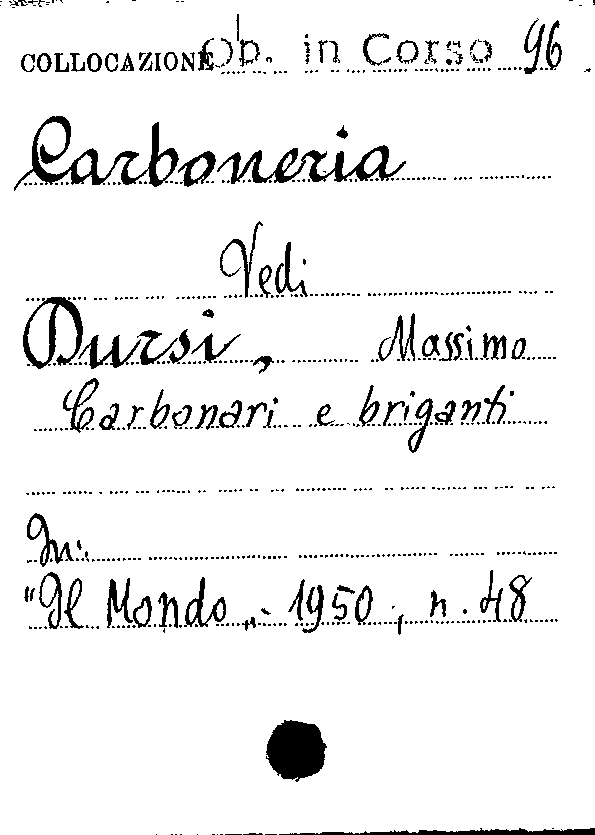 COLLOCAZIONE Ob. in Corso 96
Carboneria
Vedi
Dursi, Massimo
Carbonari e briganti
In:
"Il Mondo„ - 1950, n. 48